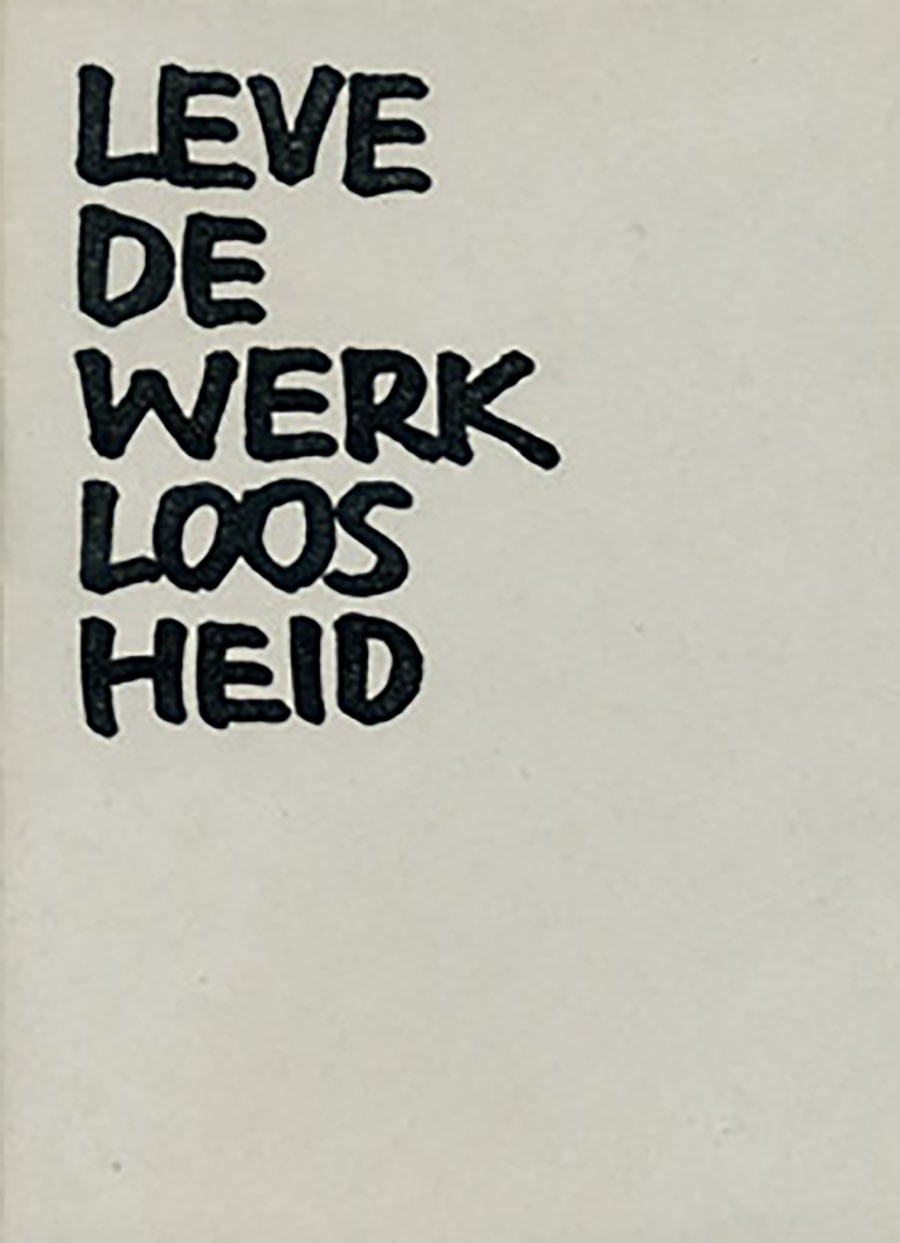 LEVE
DE
WERK
LOOS
HEID